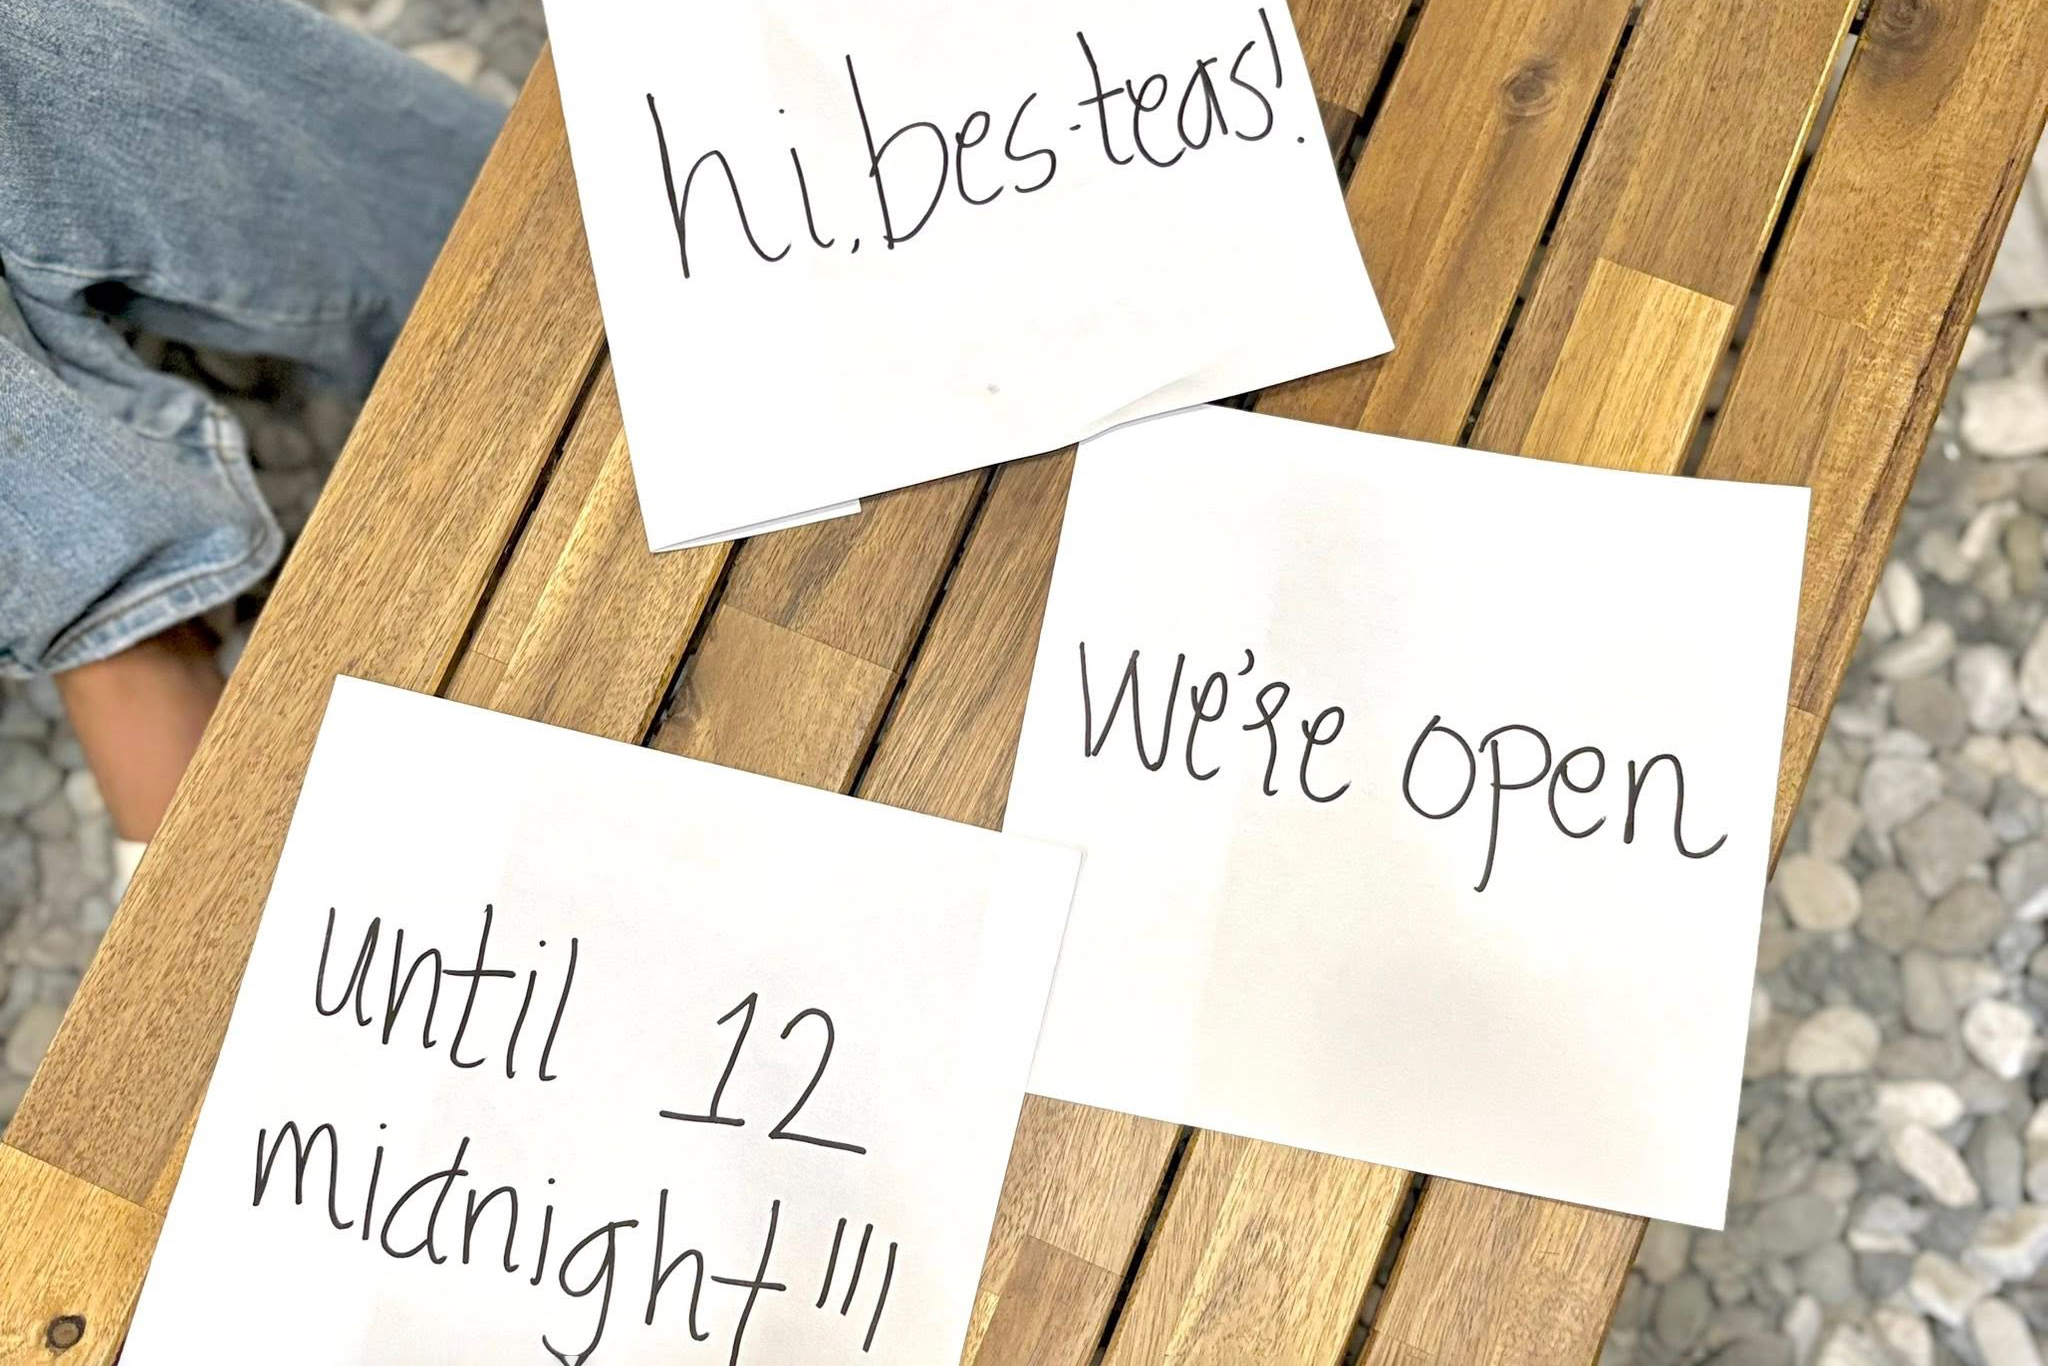 hi, bes-teas!
We're open
until 12
midnight!!!